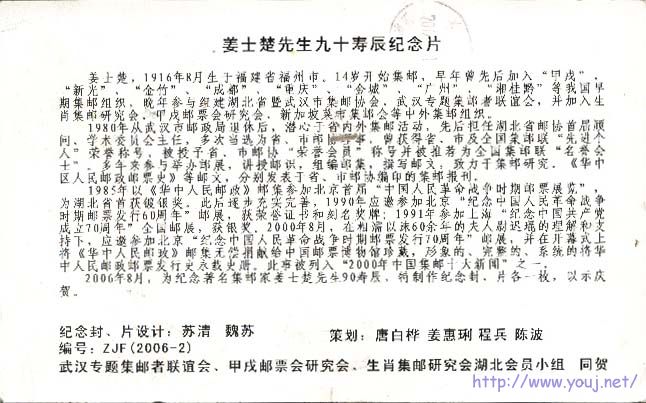 姜士楚先生九十寿辰纪念片
姜士楚，1916年8月生于福建省福州市。14岁开始集邮，早年曾先后加入“甲戌”、
“新光”、“金竹”、“成都”、“重庆”、“金城”、“广州”、“湘桂黔”等我国早
期集邮组织，晚年参与组建湖北省暨武汉市集邮协会、武汉专题集邮者联谊会，并加入生
肖集邮研究会、甲戌邮票会研究会、新加坡英市集邮会等中外集邮组织。
1980年从武汉市邮政局退休后，潜心于省内外集邮活动，先后担任湖北省邮协首届顾
问、学术委员会主任，多次当选为省、市邮协理事，曾获得省、市及全国集邮联“先进个
人”荣誉称号，被授予省、市邮协“荣誉会员”称号并被推荐为全国集邮联“名誉会
士”。多年来参与举办邮展，讲授邮识，组编邮集，撰写邮文，致力于集邮研究。《华中
区人民邮政邮票史》等邮文，分别发表于省、市邮协编印的集邮报刊。
1985年以《华中人民邮政》邮集参加北京首届“中国人民革命战争时期邮票展览”，
为湖北省首获镀银奖。此后逐步充实完善，1990年应邀参加北京“纪念中国人民革命战争
时期邮票发行60周年”邮展，获荣誉证书和刻名奖牌；1991年参加上海“纪念中国共产党
成立70周年”全国邮展，获银奖。2000年8月，在相濡以沫60余年的夫人尉迟瑶的理解和支
持下，应邀参加北京“纪念中国人民革命战争时期邮票发行70周年”邮展，并在开幕式上
将《华中人民邮政》邮集无偿捐献给中国邮票博物馆珍藏，形象的、完整的、系统的将华
中人民邮政邮票发行史永载史册。此事被列入“2000年中国集邮十大新闻”之一。
2006年8月，为纪念著名集邮家姜士楚先生90寿辰，特制作纪念封、片各一枚，以示庆
贺。
纪念封、片设计：苏清 魏苏
策划：唐白桦 姜惠琍 程兵 陈波
编号：ZJF(2006-2)
武汉专题集邮者联谊会、甲戌邮票会研究会、生肖集邮研究会湖北会员小组 同贺
http://www.youj.net/